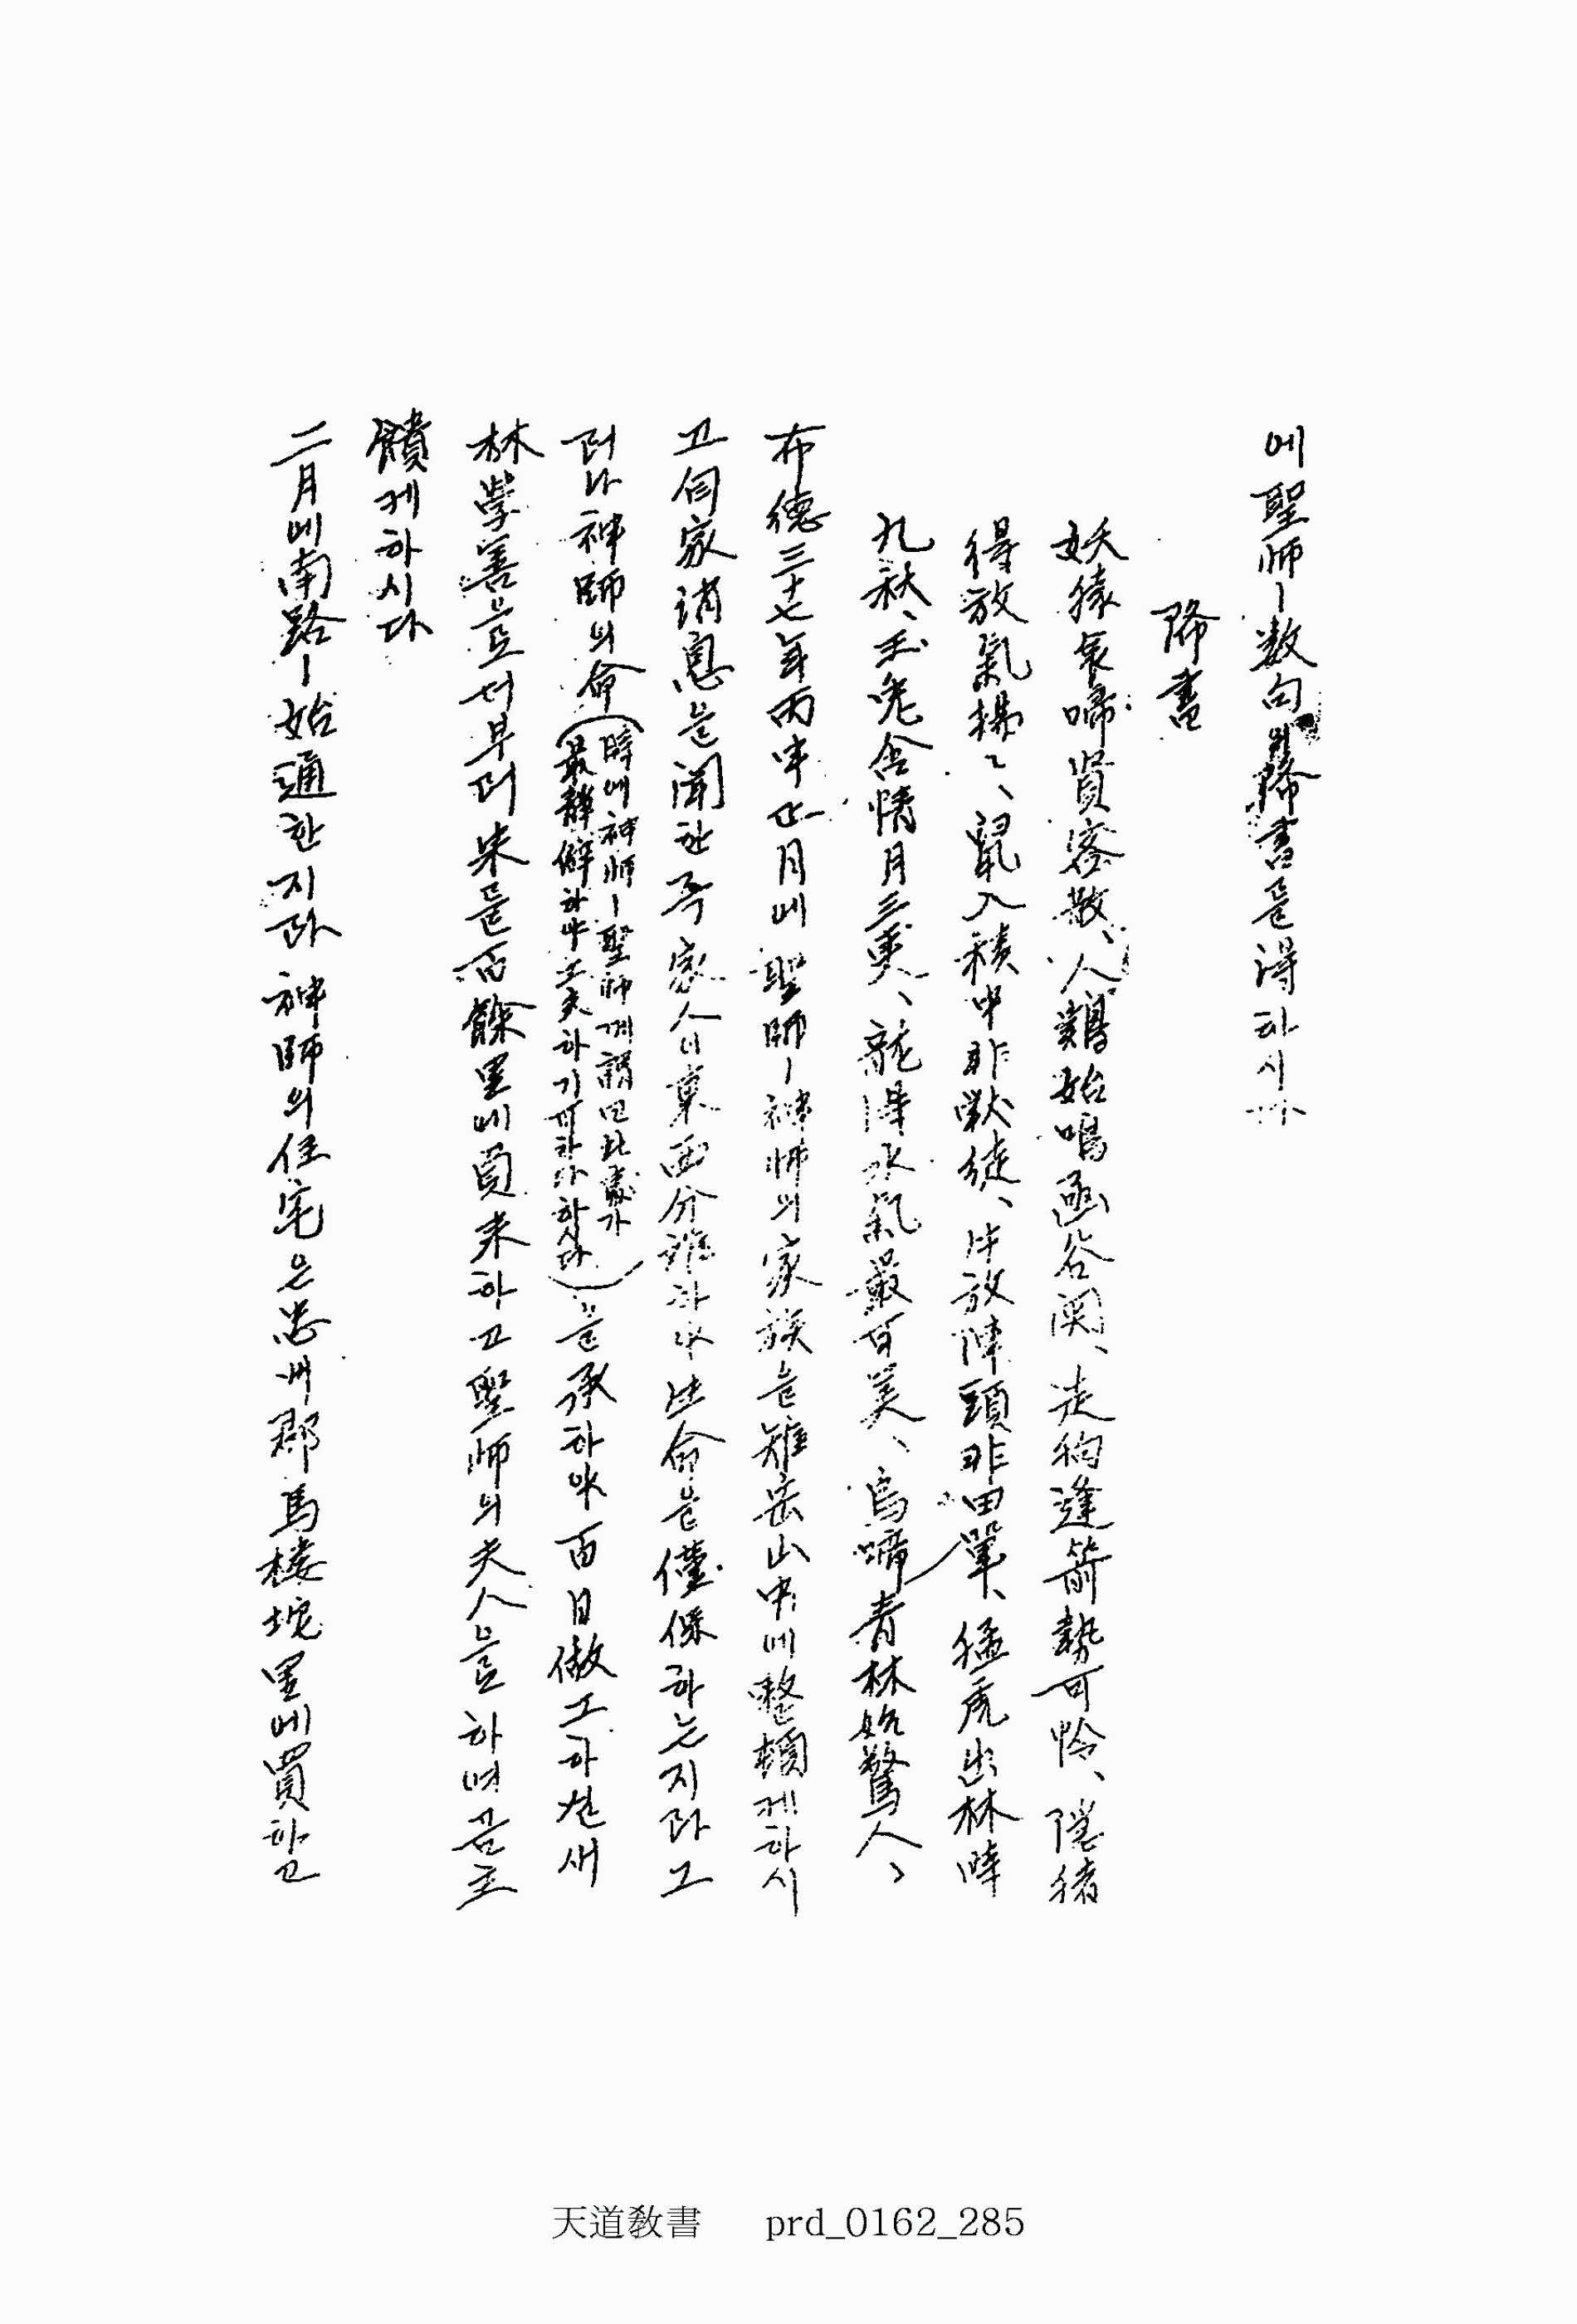 에聖師ㅣ数句의降書를得하시다
降書
妖猿哀啼賢客散、人鷄始鳴函谷関、走狗逢箭勢可怜、隱猪
得放氣揚々、鼠入積中非獣徒、牛放陣頭非田單、猛虎出林時
九秋、玉兎含情月三更、龍得水氣最可美、烏啼青林始驚人、
布德三十七年丙申正月에聖師ㅣ神師의家族을雉岳山中에整頓케하시
고伺家消息을聞한즉家人이東西分離하야生命을僅保하는지라그
러나神師의命(時에神師ㅣ聖師께謂曰此處가
最靜僻하야工夫하기可하다하시다)을承하야百日做工하실새
林學善으로더부러米를百餘里에貿来하고聖師의夫人을하여곰主
饋케하시다
二月에南路ㅣ始通한지라神師의住宅은忠州郡馬樓坮里에買하고
天道敎書 prd_0162_285